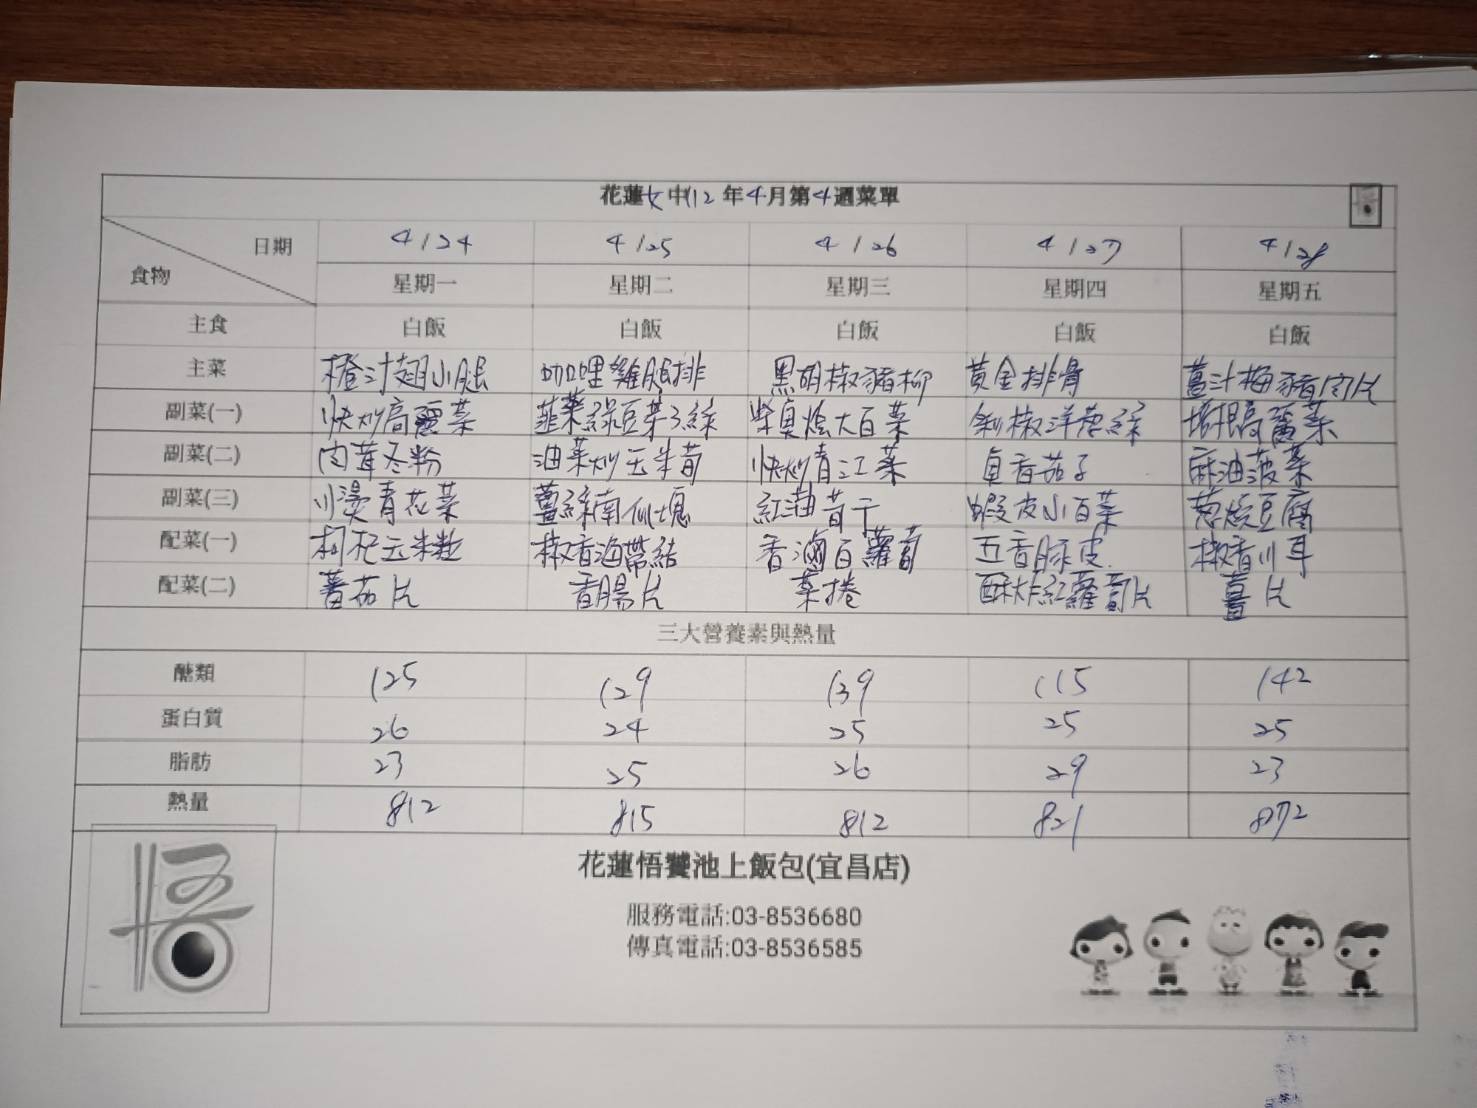 花蓮女中112年4月第4週菜單
日期 4/24 4/25 4/26 4/27 4/28
食物 星期一 星期二 星期三 星期四 星期五
主食 白飯 白飯 白飯 白飯 白飯
主菜 橙汁翅小腿 咖哩雞腿排 黑胡椒豬柳 黃金排骨 薑汁梅豬肉片
副菜(一) 快炒高麗菜 韮菜綠豆芽3絲 柴魚燴大白菜 剝椒洋蔥絲 培根高麗菜
副菜(二) 肉茸冬粉 油菜炒玉米筍 快炒青江菜 魚香茄子 麻油菠菜
副菜(三) 川燙青花菜 薑絲南瓜塊 紅油昔干 蝦皮小白菜 蔥燒豆腐
配菜(一) 枸杞玉米粒 椒香海帶結 香滷白蘿蔔 五香豚皮 椒香川耳
配菜(二) 蕃茄片 香腸片 菜捲 酥炸紅蘿蔔片 薑片
三大營養素與熱量
醣類 125 129 139 115 142
蛋白質 26 24 25 25 25
脂肪 23 25 26 29 23
熱量 812 815 812 821 872
花蓮悟饕池上飯包(宜昌店)
服務電話:03-8536680
傳真電話:03-8536585
悟